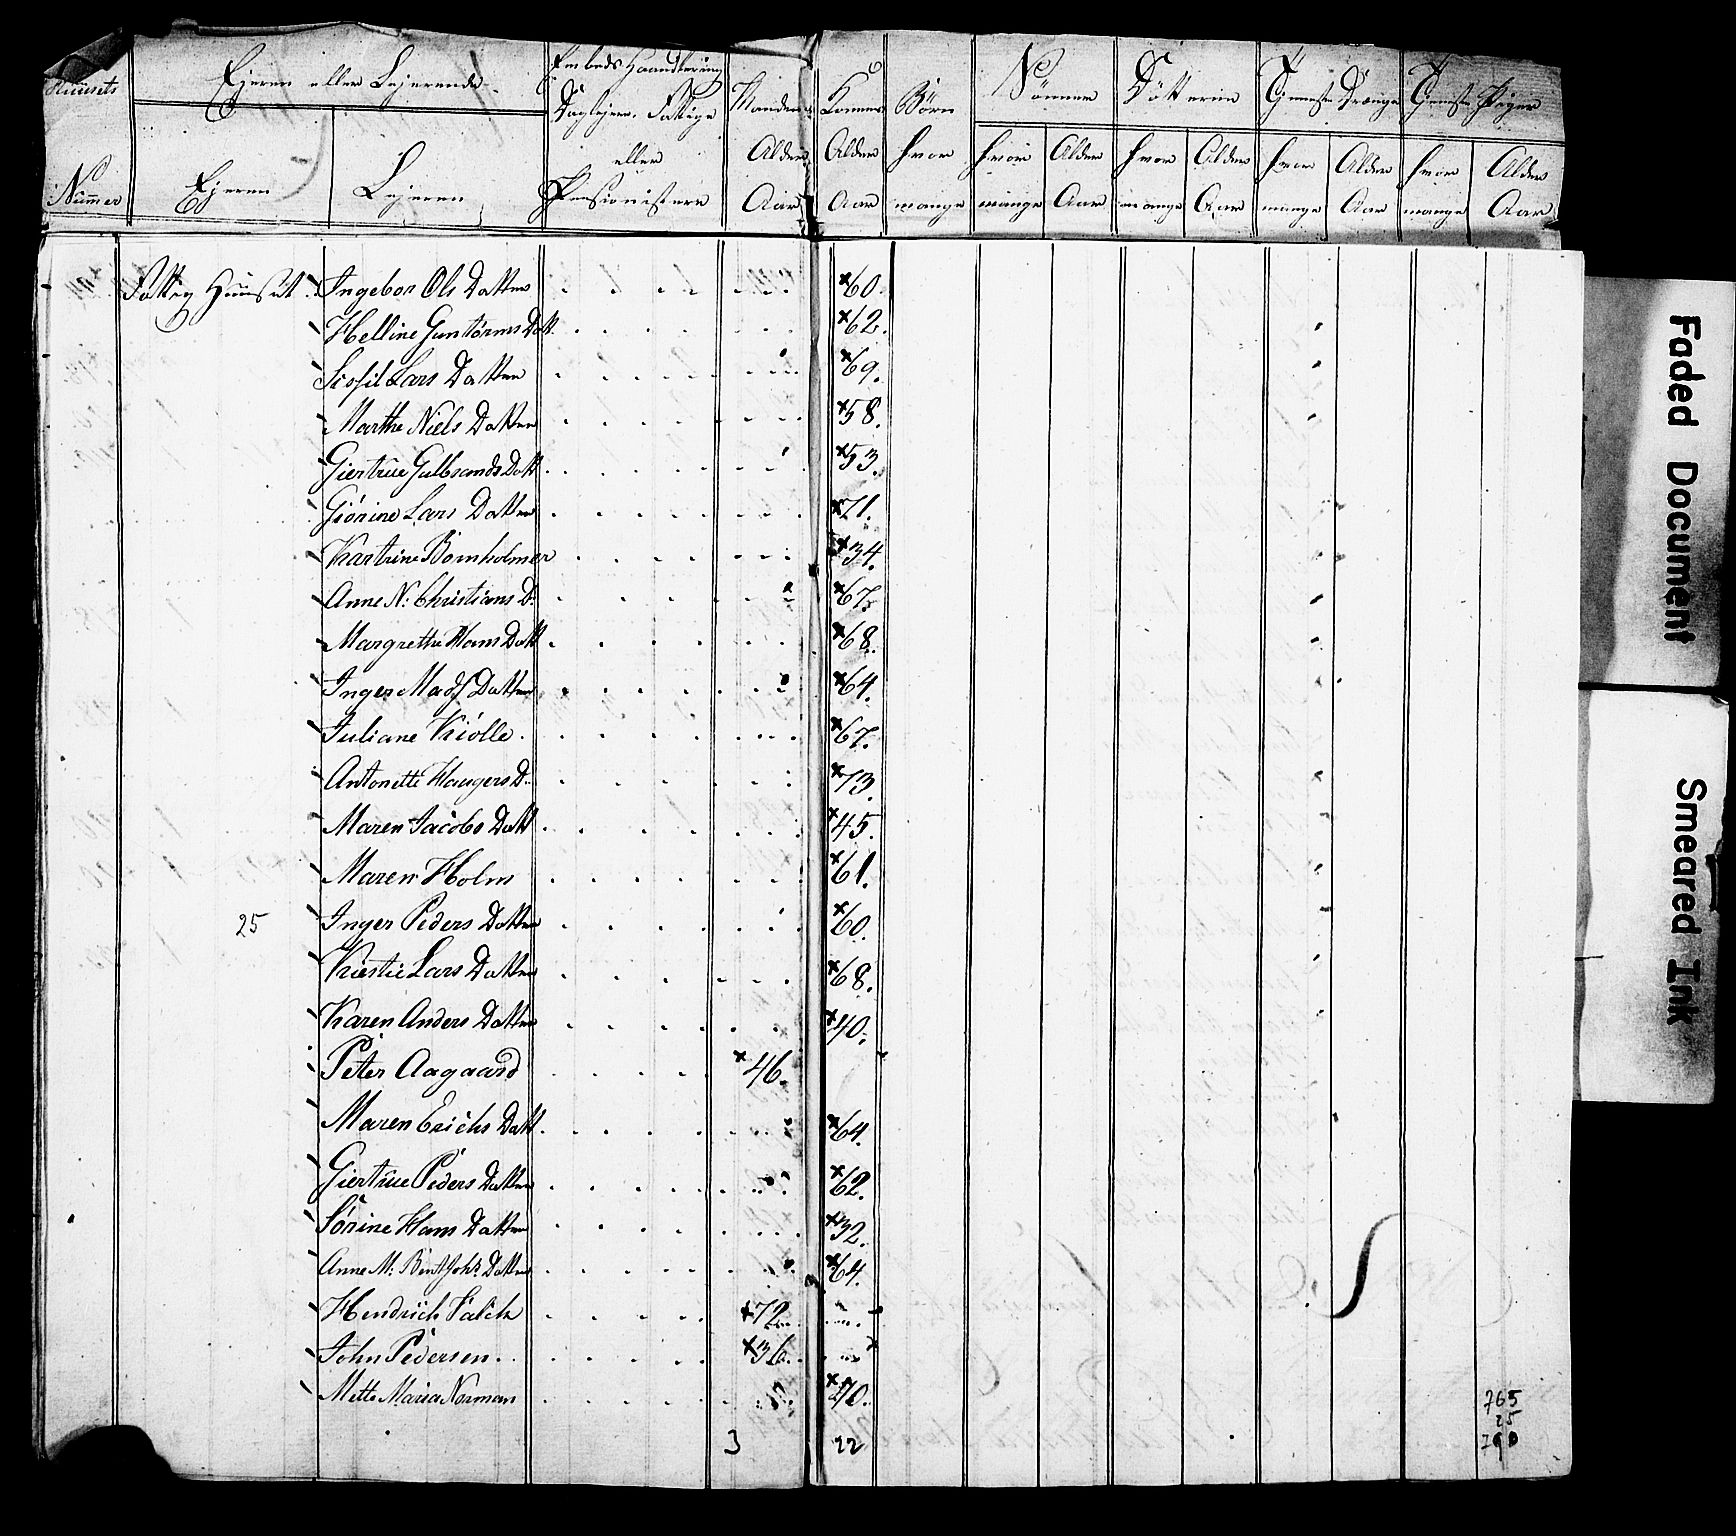 Huusets Nummer
Ejeren eller Lejerende
Ejeren
Lejeren
Embeds Haandtering
Daglejere, Fattige
eller
Pensionistere
Manden
Alder
Aar
Konen
Alder
Aar
Börn
hvor
mange
Sönner
hvor
mange
Alder
Aar
Dötterne
hvor
mange
Alder
Aar
Tjeneste Drænge
hvor
mange
Alder
Aar
Tjeneste Piger
hvor
mange
Alder
Aar
Fattig Huuset Ingebor Ols Datter ×60.
Helline Guntorms Datt ×62.
Sissil Lars Datter ×69.
Marthe Niels Datter ×58.
Giertrue Gulbrands Datt ×53.
Giörine Lars Datter ×71.
Kartrine Bornholmer ×34.
Anne N: Christians D: ×67.
Margrethe Hans Datt ×68.
Inger Mads Datter ×64.
Juliane Kiölle ×67.
Antonette Haagers D: ×73.
Maren Jacobs Datt ×45.
Maren Holm ×61.
25 Inger Peders Datter ×60.
Kirstie Lars Datter ×68.
Karen Anders Datter ×40.
Peter Aagaard ×46.
Maren Erichs Datt ×64.
Giertrue Peders Datter ×62.
Sörine Hans Datter ×32.
Anne M: Bent Joh: Datter ×64.
Hendrich Falch ×72.
John Pedersen ×36.
Mette Maria Norman ×40.
765
25
790
3 22
Faded Document
Smeared Ink